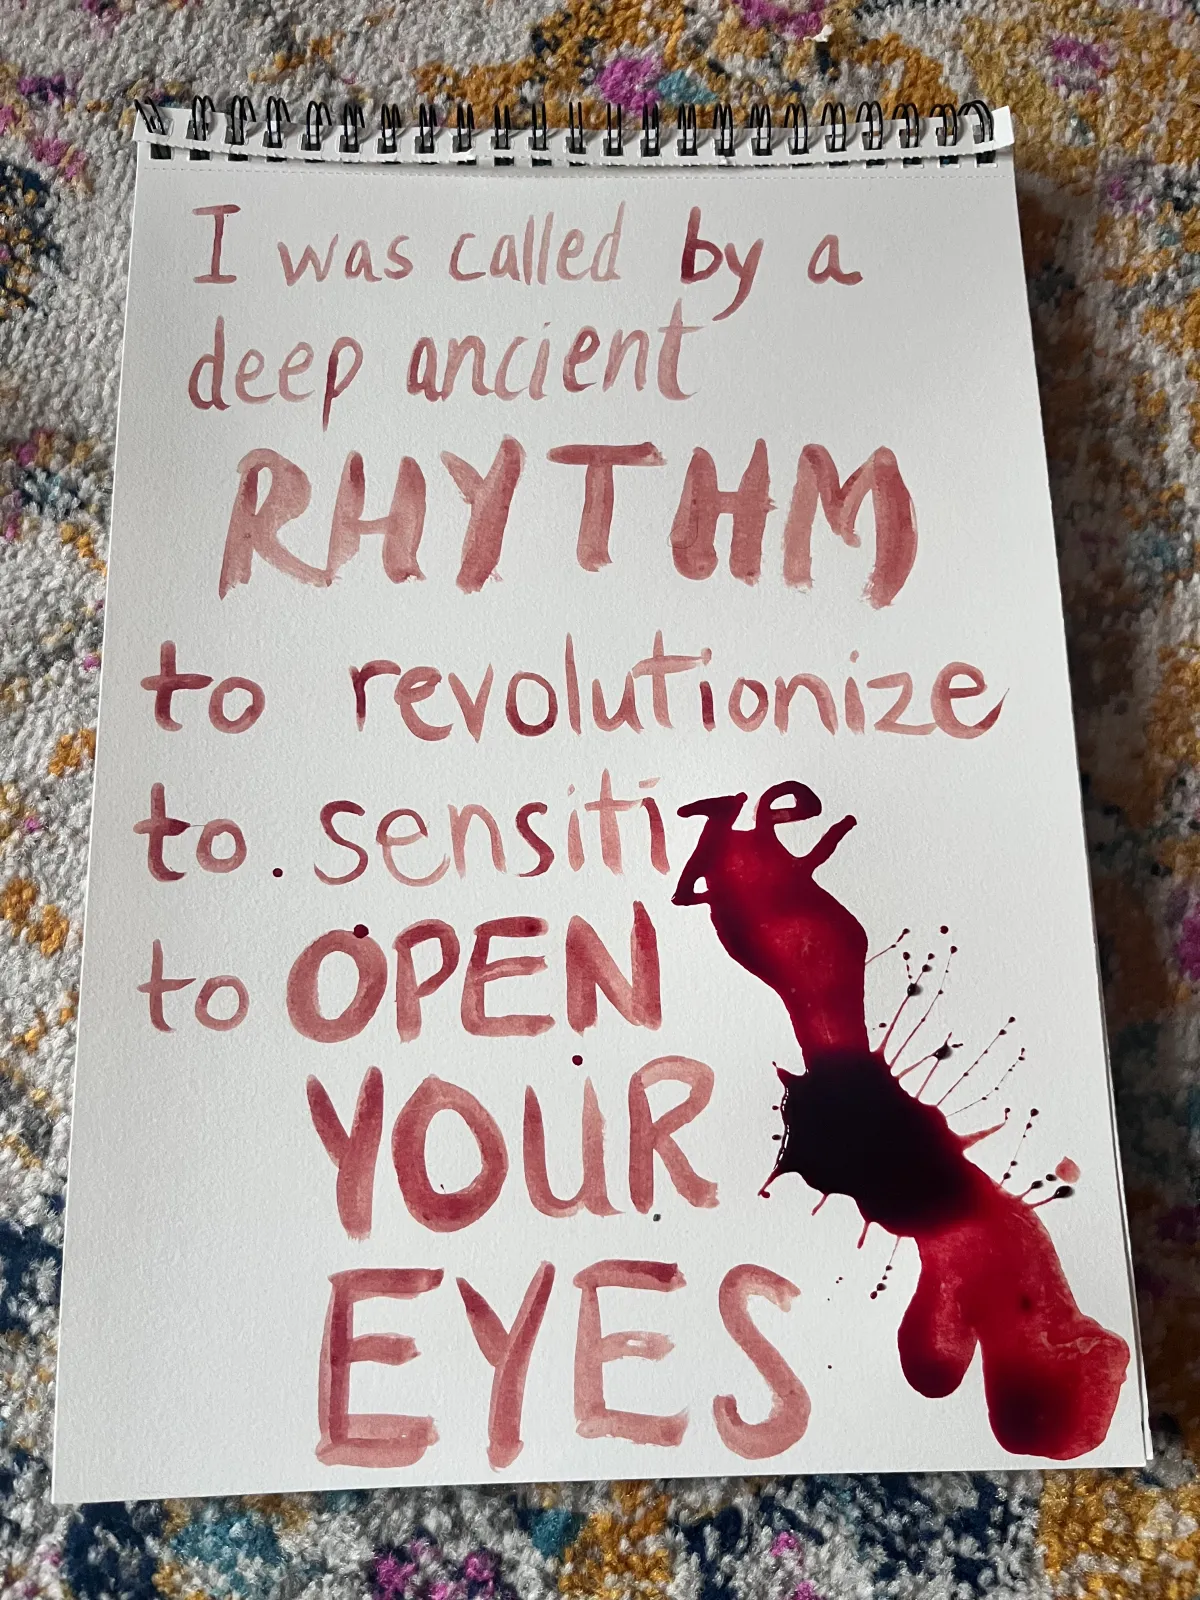 I was called by a
deep ancient
RHYTHM
to revolutionize
to. sensitize
to OPEN
YOUR
EYES